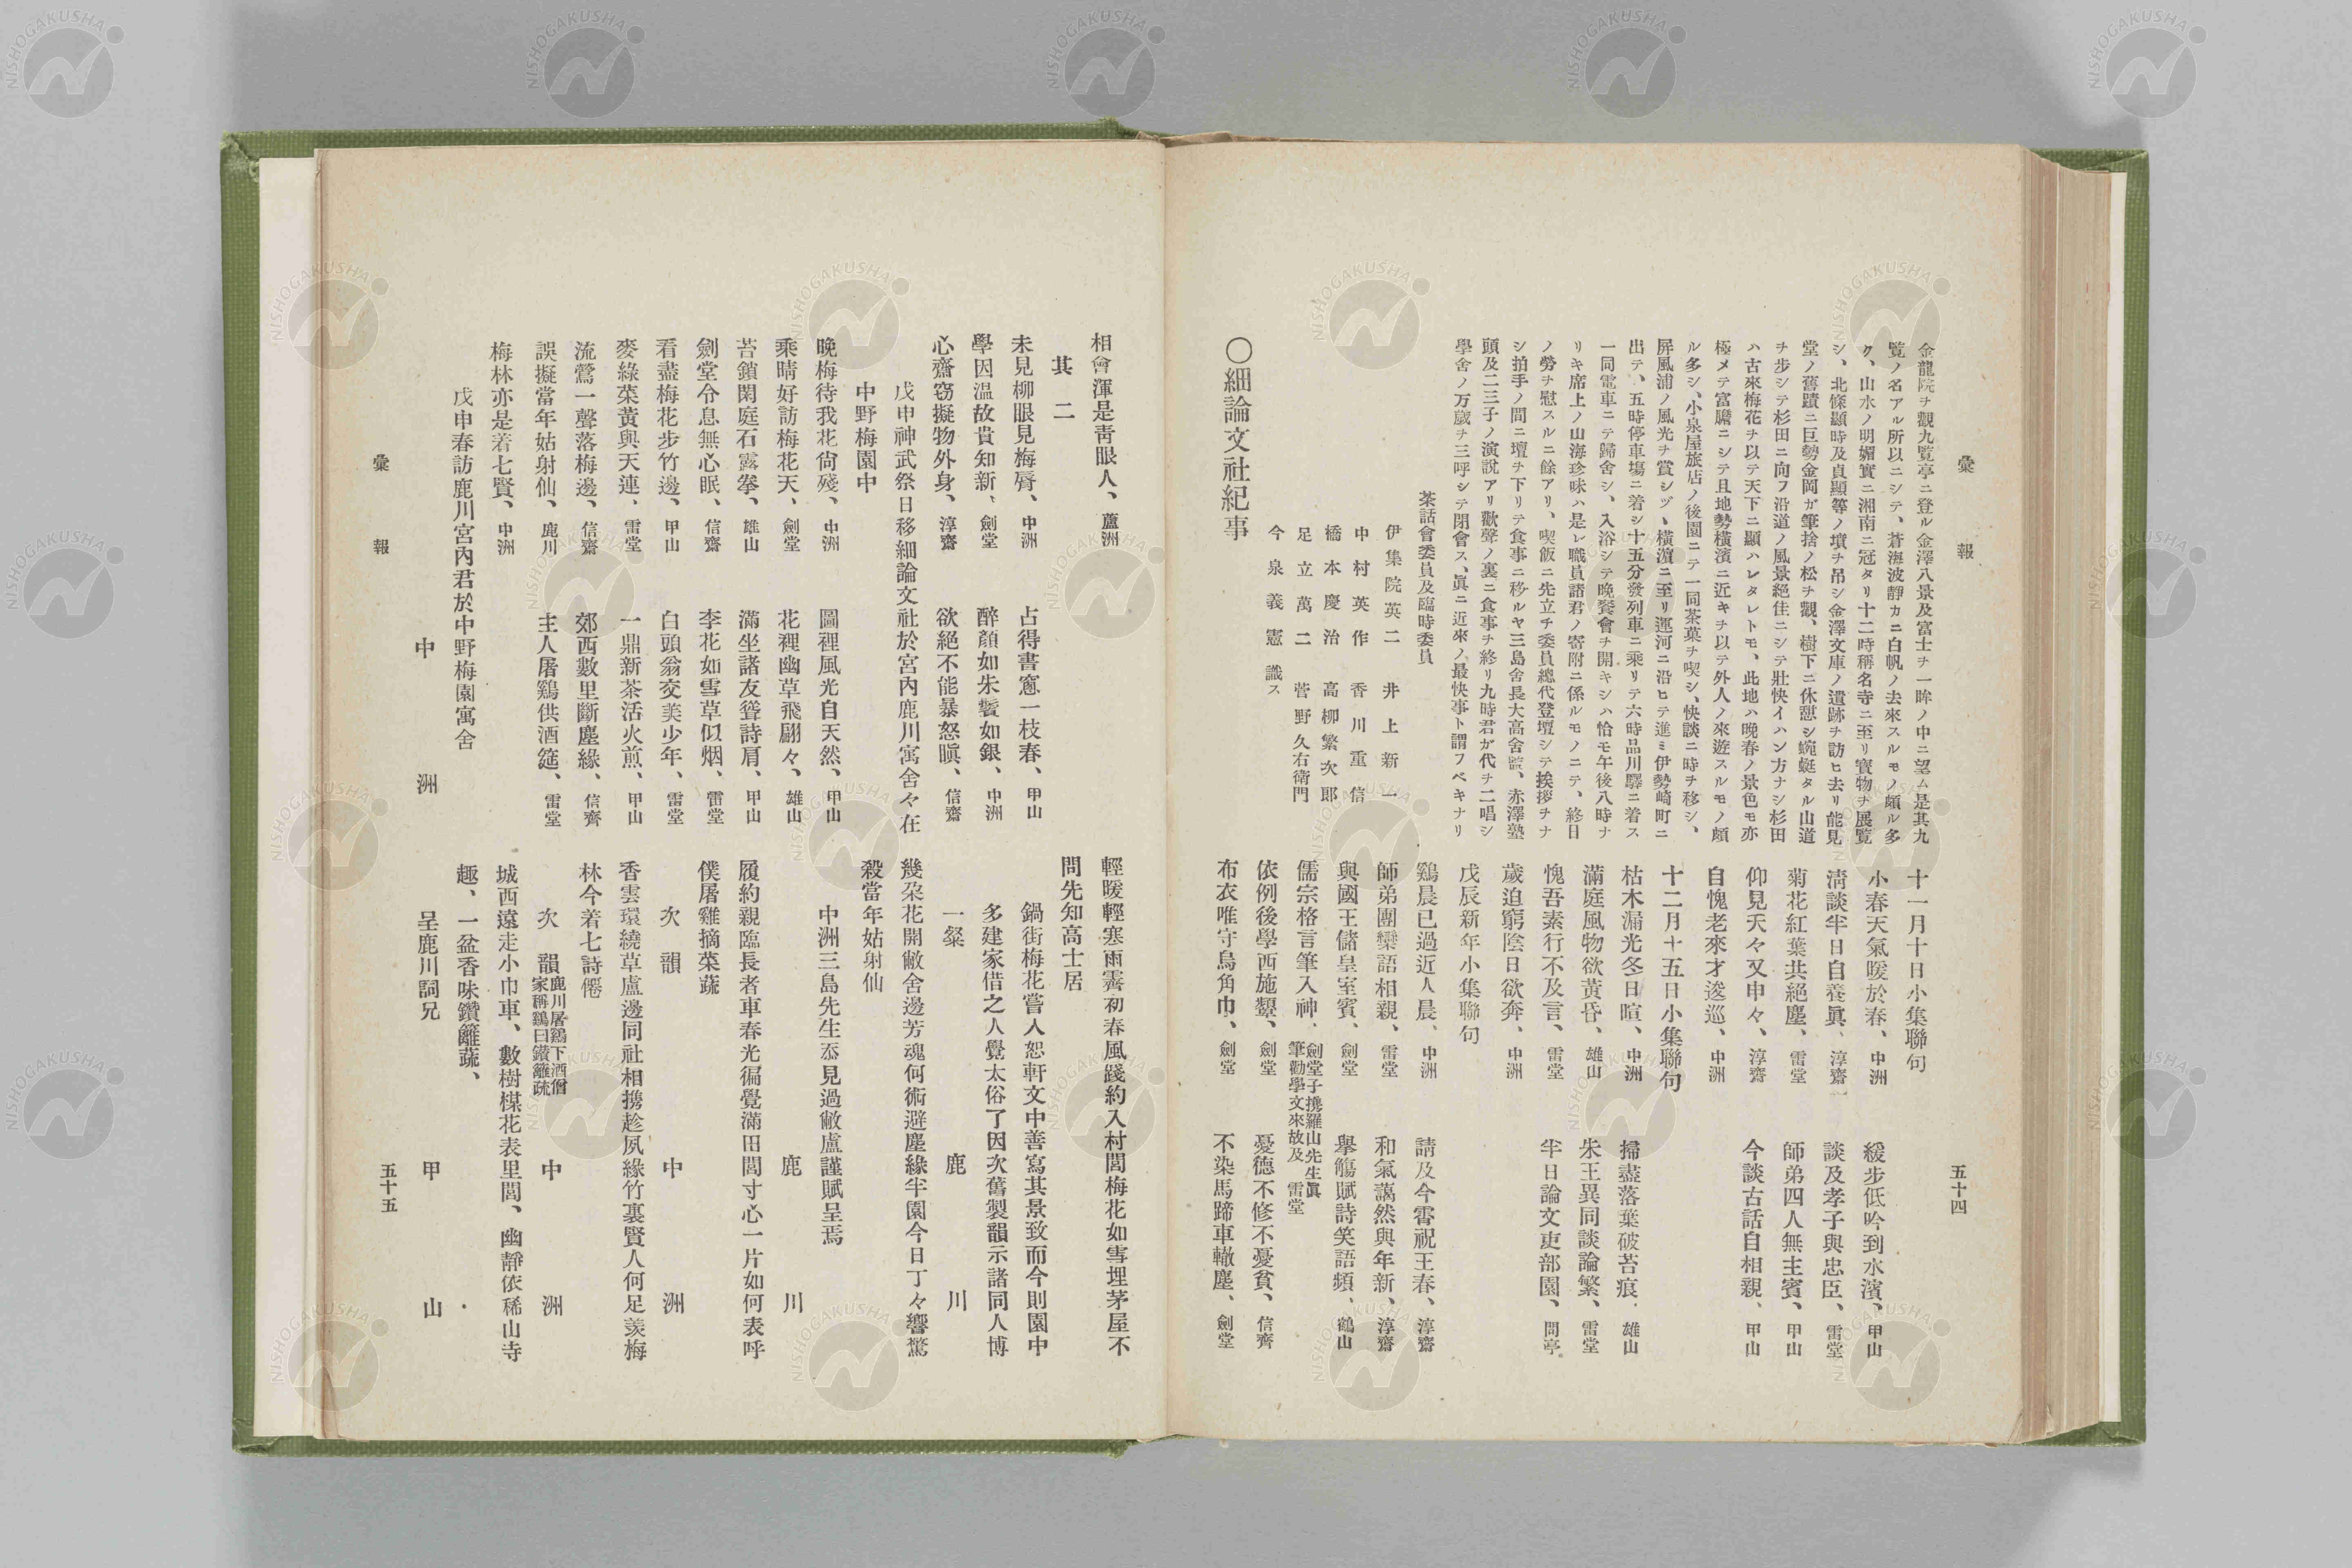 彙報
五十四
金龍院チ觀九覽亭ニ登ル金澤八景及富士チ一眸ノ中ニ望ム是其九
覽ノ名アル所以ニシテ、蒼海波靜カニ白帆ノ去來スルモノ頗ル多
ク、山水ノ明媚實ニ湘南ニ冠タリ十二時稱名寺ニ至リ寶物チ展覽
シ、北條顯時及貞顯等ノ墳チ吊シ金澤文庫ノ遺跡チ訪ヒ去リ能見
堂ノ舊蹟ニ巨勢金岡ガ筆捨ノ松チ觀、樹下ニ休憩シ蜿蜒タル山道
チ步シテ杉田ニ向フ沿道ノ風景絕佳ニシテ壯快イハン方ナシ杉田
ハ古來梅花チ以テ天下ニ顯ハレタレトモ、此地ハ晩春ノ景色モ亦
極メテ富贍ニシテ且地勢橫濱ニ近キチ以テ外人ノ來遊スルモノ頗
ル多シ、小泉屋旅店ノ後園ニテ一同茶菓チ喫シ、快談ニ時チ移シ、
屏風浦ノ風光チ賞シヅヽ橫濱ニ至リ運河ニ沿ヒテ進ミ伊勢崎町ニ
出テ、五時停車塲ニ着シ十五分發列車ニ乘リテ六時品川驛ニ着ス
一同電車ニテ歸舍シ、入浴シテ晩餐會チ開キシハ恰モ午後八時ナ
リキ席上ノ山海珍味ハ是レ職員諸君ノ寄附ニ係ルモノニテ、終日
ノ勞チ慰スルニ餘アリ、喫飯ニ先立チ委員總代登壇シテ挨拶チナ
シ拍手ノ間ニ壇チ下リテ食事ニ移ルヤ三島舍長大高舍監、赤澤塾
頭及二三子ノ演說アリ歡聲ノ裏ニ食事チ終リ九時君ガ代チ二唱シ
學舍ノ万歲チ三呼シテ閉會ス、眞ニ近來ノ最快事ト謂フベキナリ
茶話會委員及臨時委員
伊集院英二 井上新一
中村英作 香川重信
橋本慶治 高柳繁次郎
足立萬二 菅野久右衞門
今泉義憲識ス
〇細論文社紀事
十一月十日小集聯句
小春天氣暖於春、中洲 緩步低吟到水濱、甲山
淸談半日自養眞、淳齋 談及孝子與忠臣、雷堂
菊花紅葉共絕塵、雷堂 師弟四人無主賓、甲山
仰見夭々又申々、淳齋 今談古話自相親、甲山
自愧老來才逡巡、中洲
十二月十五日小集聯句
枯木漏光冬日暄、中洲 掃盡落葉破苔痕、雄山
滿庭風物欲黃昏、雄山 朱王異同談論繁、雷堂
愧吾素行不及言、雷堂 半日論文吏部園、問亭
歲迫窮陰日欲奔、中洲
戊辰新年小集聯句
鷄晨已過近人晨、中洲 請及今霄祝王春、淳齋
師弟團欒語相親、雷堂 和氣藹然與年新、淳齋
與國王儲皇室賓、劍堂 擧觴賦詩笑語頻、鶴山
儒宗格言筆入神、劍堂子携羅山先生眞筆勸學文來故及 雷堂
依例後學西施顰、劍堂 憂德不修不憂貧、信齊
布衣唯守烏角巾、劍堂 不染馬蹄車轍塵、劍堂
相會渾是靑眼人、蘆洲
其二
未見柳眼見梅脣、中洲 占得書窻一枝春、甲山
學因温故貴知新、劍堂 醉顏如朱鬢如銀、中洲
心齋窃擬物外身、淳齋 欲絕不能暴怒瞋、信齋
戊申神武祭日移細論文社於宮內鹿川寓舍々在
中野梅園中
晩梅待我花尙殘、中洲 圖裡風光自天然、甲山
乘晴好訪梅花天、劍堂 花裡幽草飛翩々、雄山
苔鎖閑庭石露拳、雄山 滿坐諸友聳詩肩、甲山
劍堂令息無心眠、信齋 李花如雪草似烟、雷堂
看盡梅花步竹邊、甲山 白頭翁交美少年、雷堂
麥綠菜黃與天連、雷堂 一鼎新茶活火煎、甲山
流鶯一聲落梅邊、信齋 郊西數里斷塵緣、信齊
誤擬當年姑射仙、鹿川 主人屠鷄供酒筵、雷堂
梅林亦是着七賢、中洲
戊申春訪鹿川宮內君於中野梅園寓舍
中洲
輕暖輕寒雨霽初春風踐約入村閭梅花如雪埋茅屋不
問先知高士居
鍋街梅花嘗人恕軒文中善寫其景致而今則園中
多建家借之人覺太俗了因次舊製韻示諸同人博
一粲 鹿川
幾朶花開敝舍邊芳魂何術避塵緣半園今日丁々響驚
殺當年姑射仙
中洲三島先生忝見過敝廬謹賦呈焉
鹿川
履約親臨長者車春光徧覺滿田閭寸心一片如何表呼
僕屠雞摘菜蔬
次韻 中洲
香雲環繞草廬邊同社相携趁夙緣竹裏賢人何足羨梅
林今着七詩僊
次韻 鹿川屠鷄下酒僧家稱鷄曰鑽籬疏 中洲
城西遠走小巾車、數樹楳花表里閭、幽靜依稀山寺
趣、一盆香味鑽籬蔬、
呈鹿川詞兄 甲山
彙報
五十五